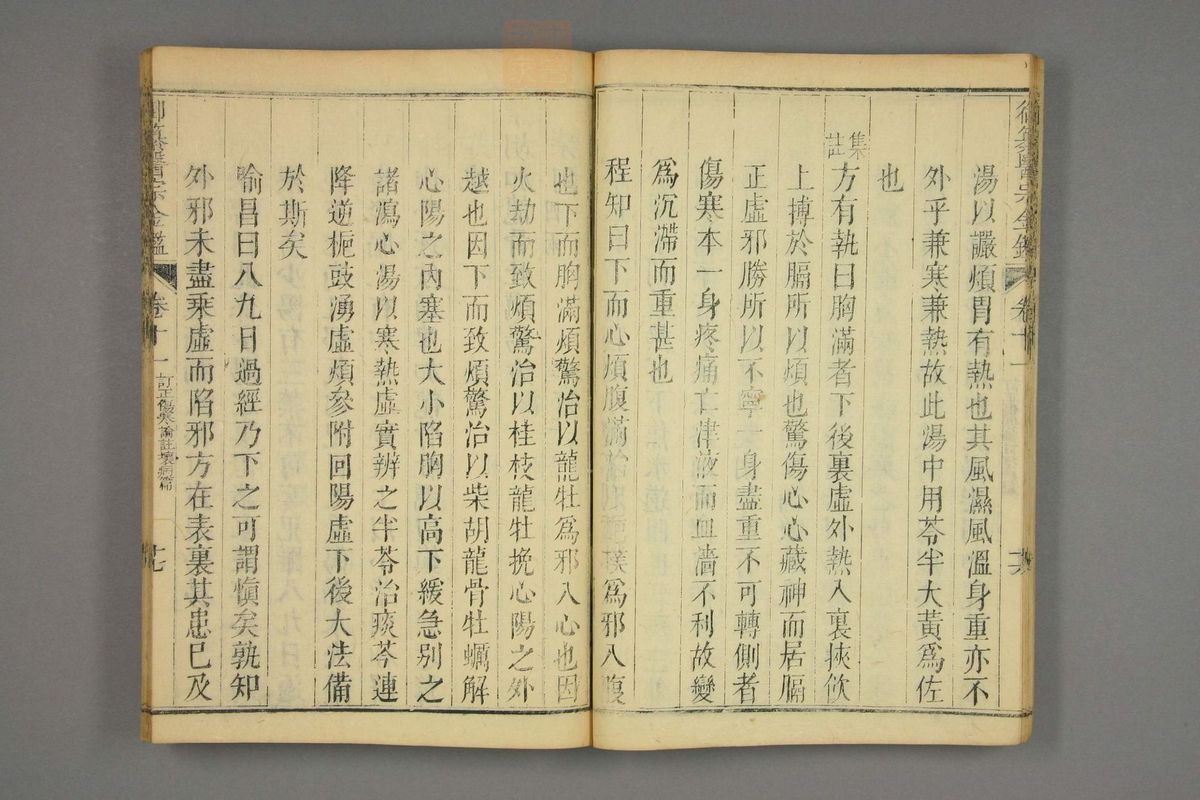 湯以讝煩胃有熱也其風濕風溫身重亦不
外乎兼寒兼熱故此湯中用苓半大黃爲佐
也
集註
方有執曰胸滿者下後裏虛外熱入裏挾飲
上摶於膈所以煩也驚傷心心藏神而居膈
正虛邪勝所以不寧一身盡重不可轉側者
傷寒本一身疼痛亡津液而血濇不利故變
爲沉滯而重甚也
程知曰下而心煩腹滿治以枳樸爲邪入腹
也下而胸滿煩驚治以龍牡爲邪入心也因
火劫而致煩驚治以桂枝龍牡挽心陽之外
越也因下而致煩驚治以柴胡龍骨牡蠣解
心陽之內塞也大小陷胸以高下緩急別之
諸瀉心湯以寒熱虛實辨之半苓治痰芩連
降逆梔豉湧虛煩參附回陽虛下後大法備
於斯矣
喻昌曰八九日過經乃下之可謂愼矣孰知
外邪未盡乘虛而陷邪方在表裏其患已及
御纂醫宗金鑑
卷十一
十六
御纂醫宗金鑑
卷十一
訂正傷寒論註壞病篇
十七